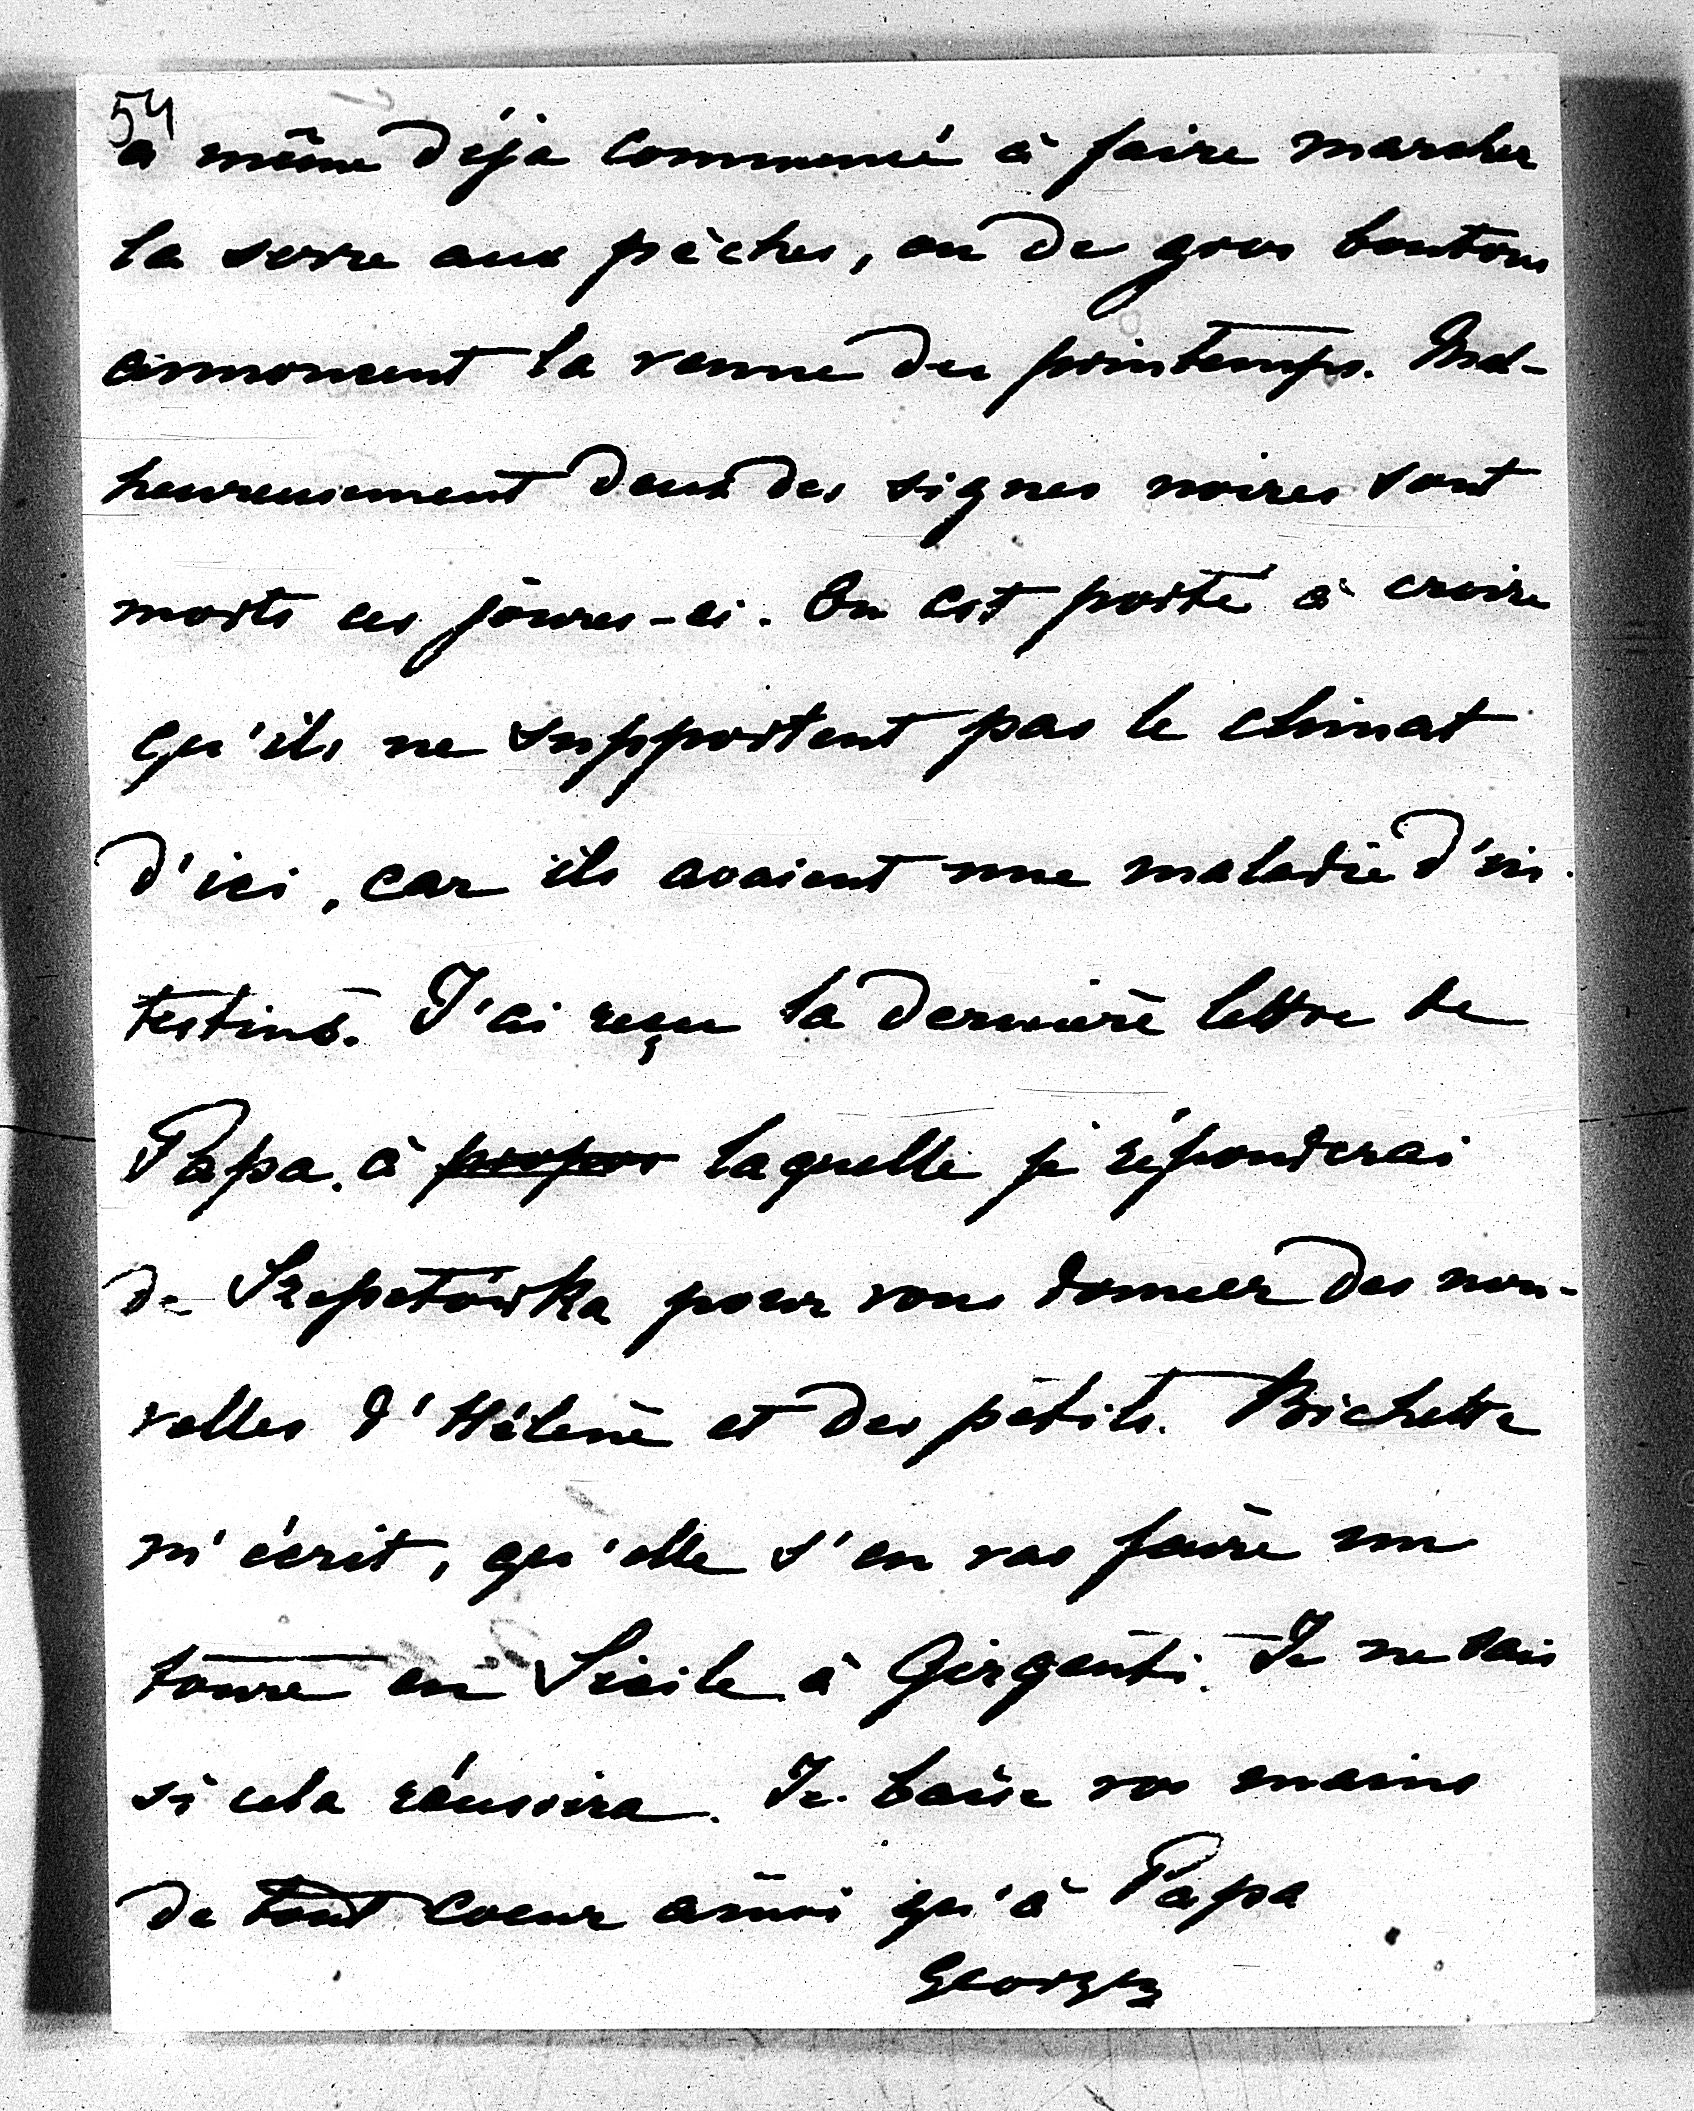 54
a même déja commencé à faire marcher
la serre aux pêches, ou de gros boutons
annoncent la venue du printemps. Mal-
heureusement deux des signes noires sont
morts ces jours-ci. On est porté à croire
qu'ils ne supportent pas le climat
d'ici, car ils avaient une maladie d'in-
testins. J'ai reçu la dernière lettre de
Papa, à propos laquelle je réponderai
de Szepetówka pour vous donner des nou-
velles d'Hélène et des petits. Bichette
m'écrit, qu'elle s'en vas faire un
toure en Sicile à Girgenti. Je ne sais
si cela réussira. Je baise vos mains
de tout coeur ainsi qu'à Papa
Georges